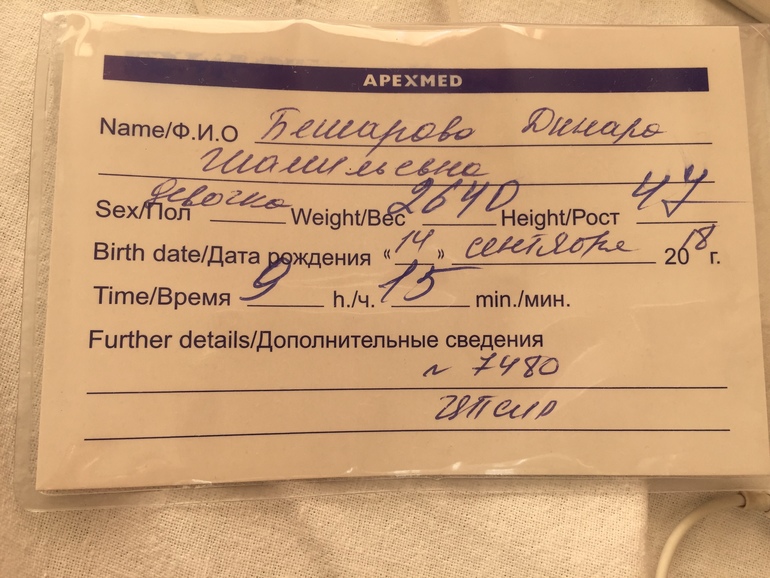 APEXMED
Name/Ф.И.О Бешарова Динара
Шамильевна
Sex/Пол девочка Weight/Вес 2640 Height/Рост 47
Birth date/Дата рождения «14» сентября 2018 г.
Time/Время 9 h./ч. 15 min./мин.
Further details/Дополнительные сведения
~ 7480
ЦПСиР